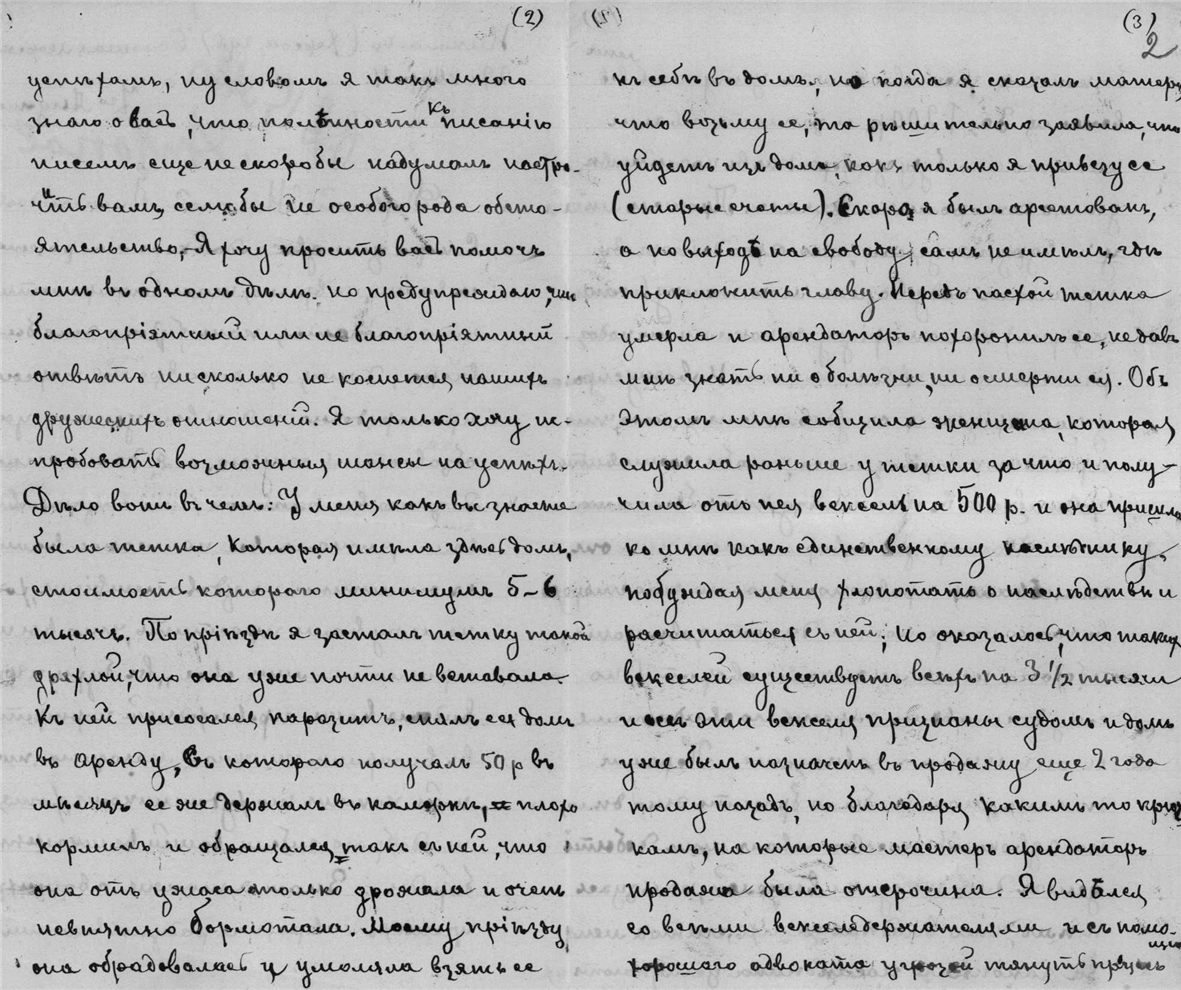 (2)
успѣхамъ, ну словомъ я такъ много
знаю о васъ, что по лѣнности къ писанію
писемъ еще не скоро бы надумалъ настро-
чить вамъ, если бы не особого рода обсто-
ятельство. – Я хочу просить васъ помочь
мнѣ въ одномъ дѣлѣ. но предупреждаю, что
благопріятный или не благопріятный
отвѣтъ нисколько не коснется нашихъ
дружескихъ отношеній. Я только хочу ис-
пробовать возможныя шансы на успѣхъ.
Дѣло вотъ въ чемъ: У меня какъ вы знаете
была тетка, которая имѣла здѣсь домъ,
стоимость котораго минимумъ 5–6
тысячъ. По пріѣздѣ я засталъ тетку такой
дряхлой, что она уже почти не вставала.
Къ ней присосался паразитъ, снялъ ея домъ
въ аренду, съ котораго получалъ 50 р въ
мѣсяцъ ее же держалъ въ каморкѣ, плохо
кормилъ и обращался такъ съ ней, что
она отъ ужаса только дрожала и очень
невнятно бормотала. Моему пріѣзду
она обрадовалась и умоляла взять ее
(3)
2
къ себѣ въ домъ, но когда я сказалъ матери
что возьму ее, та рѣшительно заявила, что
уйдетъ изъ дома, какъ только я привезу ее
(старые счеты). Скоро я былъ арестованъ,
а по выходѣ на свободу, самъ не имѣлъ, гдѣ
приклонить главу. Передъ пасхой тетка
умерла и арендаторъ похоронилъ ее, не давъ
мнѣ знать ни о болѣзни, ни о смерти ея. Объ
этомъ мнѣ сообщила женщина, которая
служила раньше у тетки за что и полу-
чила отъ нея вексель на 500 р. и она пришла
ко мнѣ какъ единственному наслѣднику,
побуждая меня хлопотать о наслѣдствѣ и
расчитаться съ ней; Но оказалось, что такихъ
векселей существуетъ всѣхъ на 3 ½ тысячи
и всѣ эти векселя признаны судомъ и домъ
уже былъ назначенъ въ продажу еще 2 года
тому назадъ, но благодаря какимъ то крюч
камъ, на которые мастеръ арендаторъ
продажа была отсрочина. Я видѣлся
со всѣми векселедержателями и съ помо-
щью
хорошаго адвоката угрозой тянуть